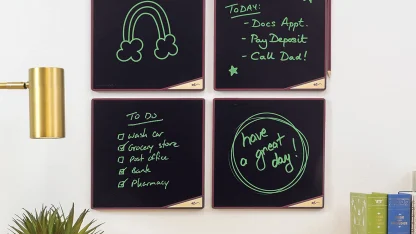 TODAY:
- Docs Appt.
- Pay Deposit
- Call Dad!
TO DO
☐ Wash car
☑ Grocery store
☐ Post office
☑ Bank
☑ Pharmacy
have
a great
day!